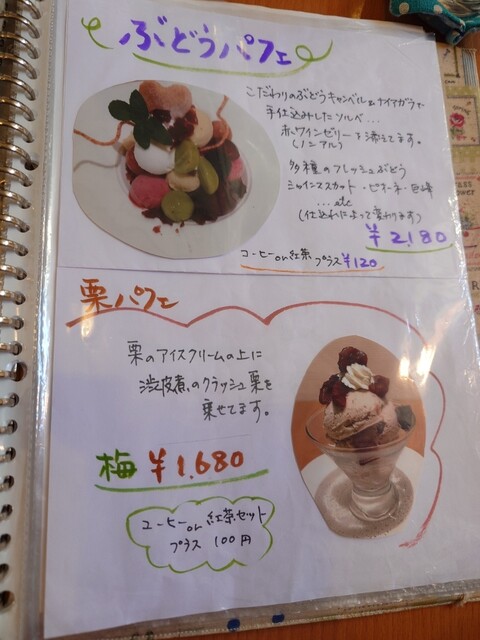 ぶどうパフェ
こだわりのぶどうキャンベル&ナイアガラで
手仕込みしたソルベ…
赤ワインゼリーを添えてます。
(ノンアル)
多種のフレッシュぶどう
シャインマスカット・ピオーネ・巨峰
…etc
(仕込みによって変わります)
¥2,180
コーヒーor紅茶 プラス ¥120
栗パフェ
栗のアイスクリームの上に
渋皮煮のクラッシュ栗を
乗せてます。
梅 ¥1,680
コーヒーor紅茶セット
プラス 100円